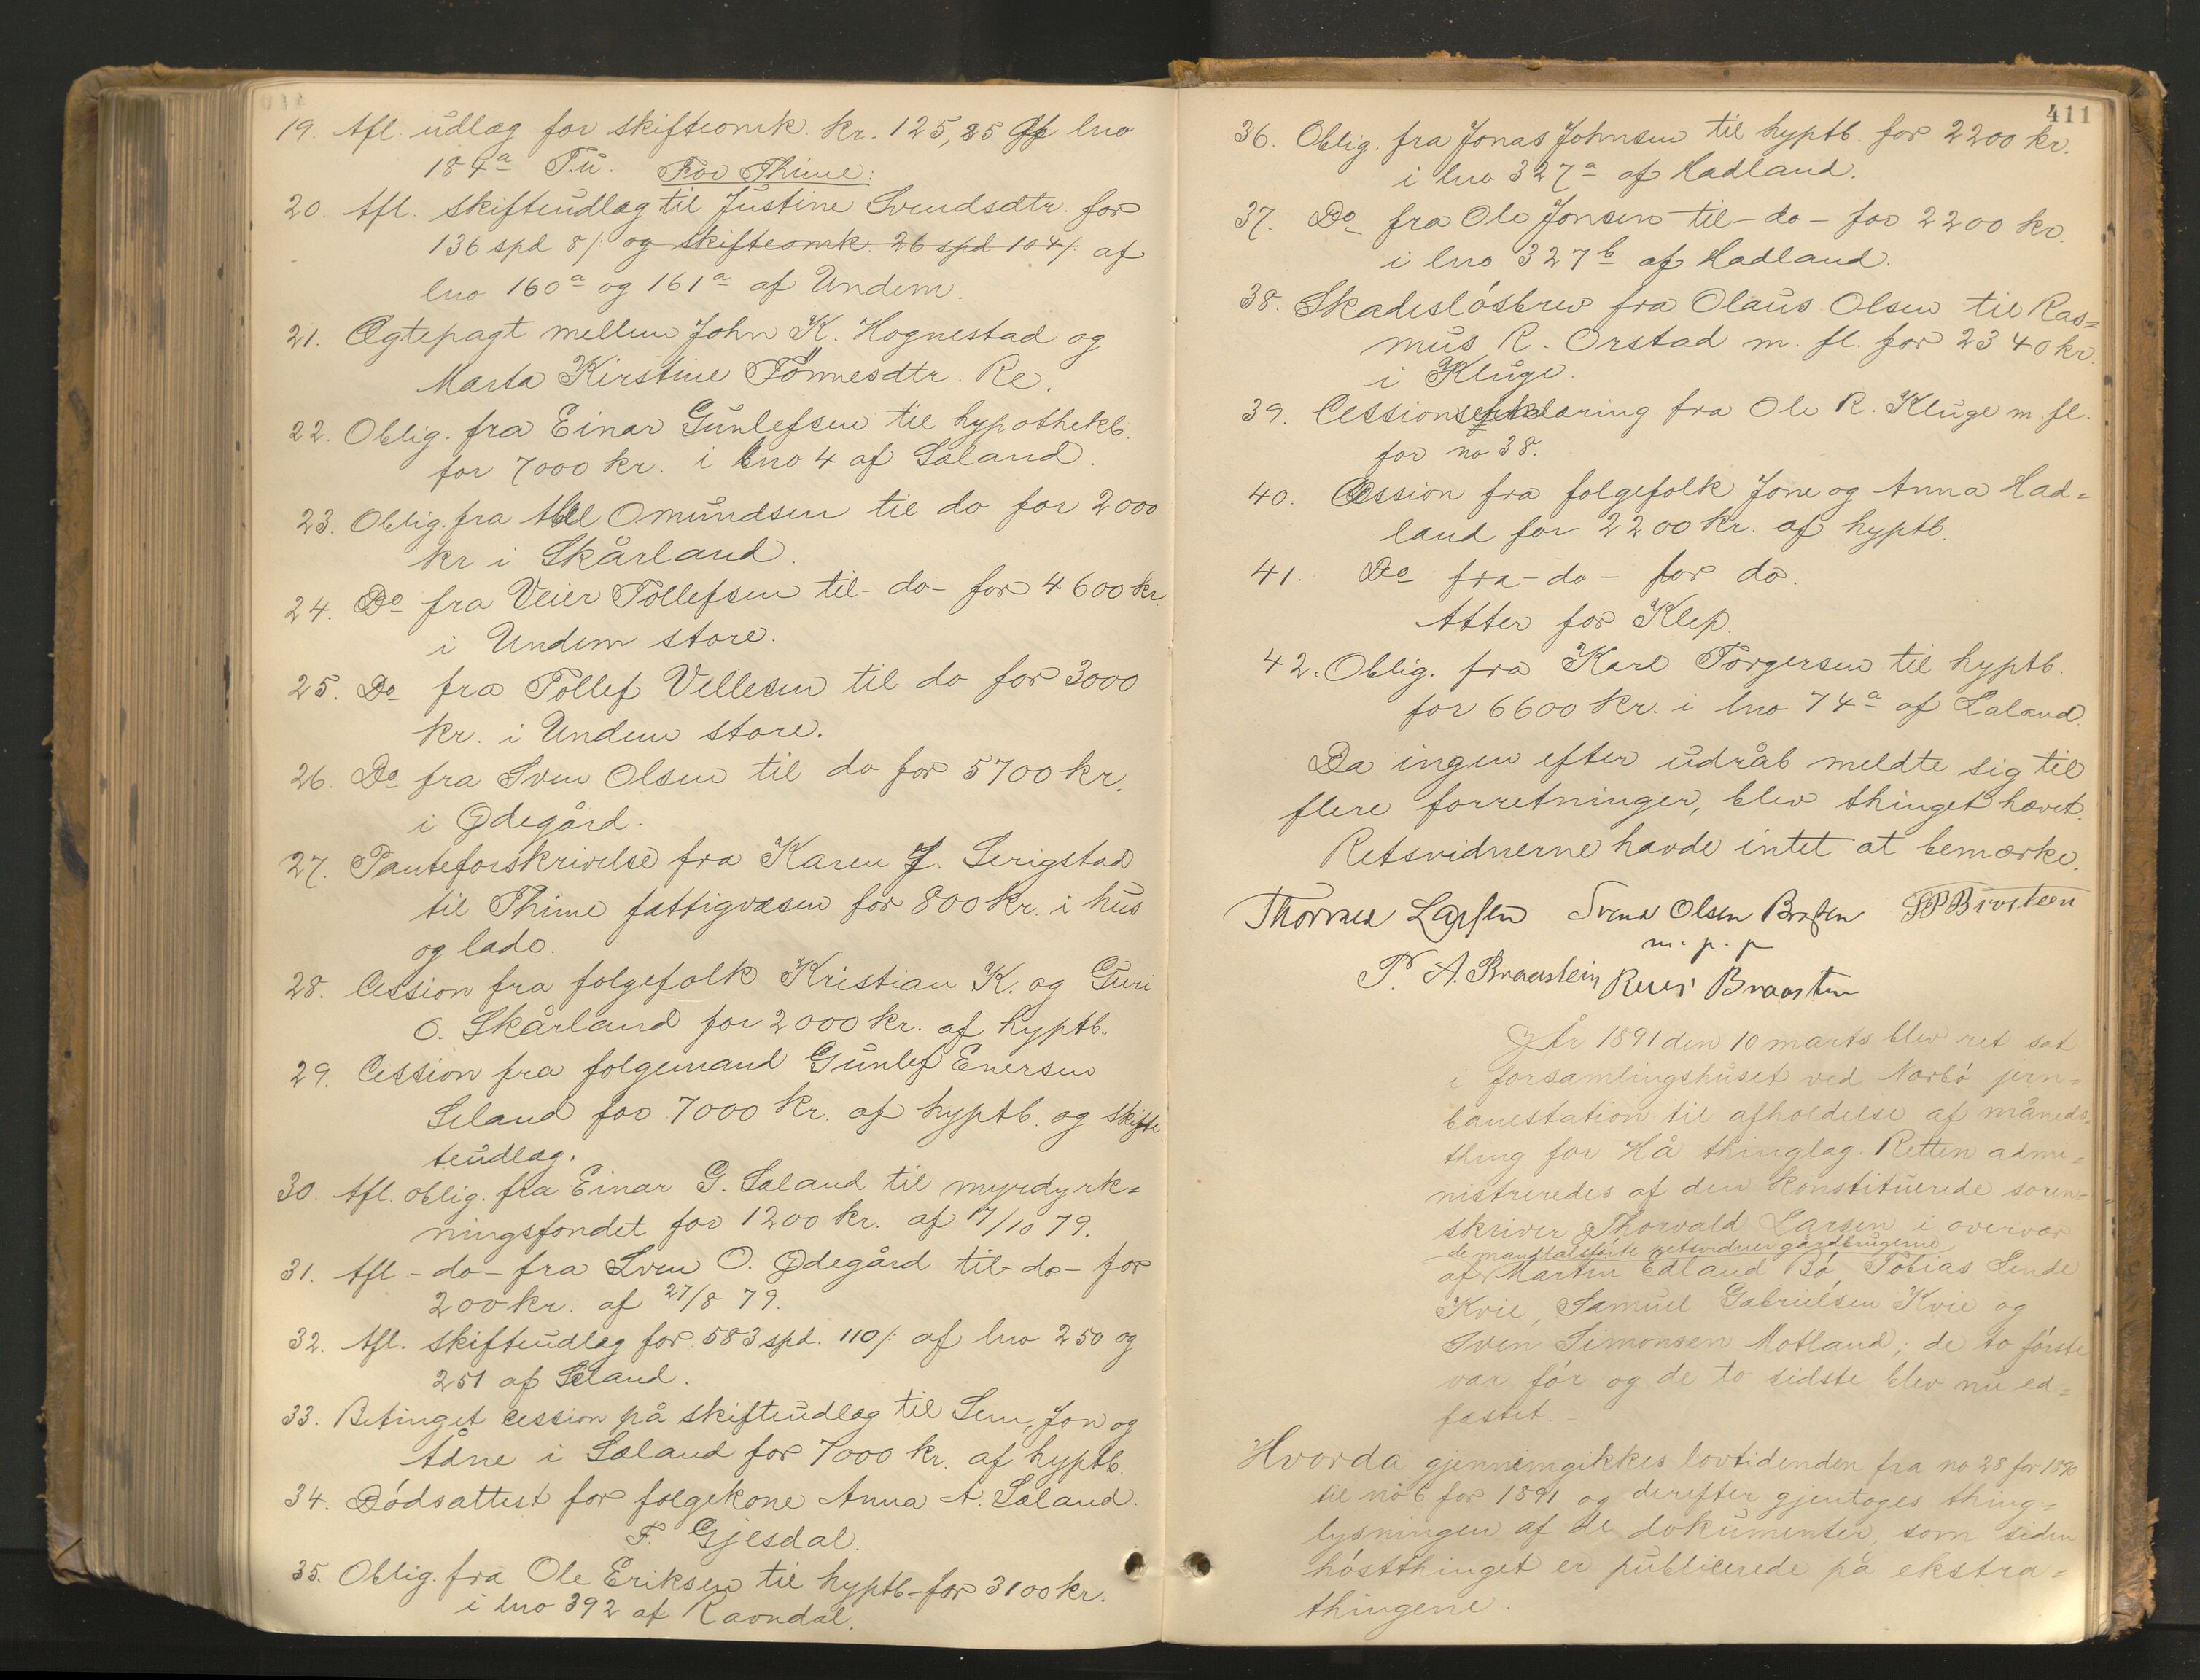 19. Afl. udlæg for skifteomk. kr. 125,25 lno
184a T.u. For Thime:
20. Afl. skifteudlæg til Justine Svendsdtr. for
136 spd 8/: og skifteomk. 26 spd 104/: af
lno 160a og 161a af Undem.
21. Ægtepagt mellem John K. Hognestad og
Marta Kirstine Tönnesdtr. Re.
22. Oblig. fra Einar Gunlefsen til hypothekb.
for 7000 kr. i lno 4 af Sæland.
23. Oblig. fra Abel Omundsen til do for 2000
kr i Skårland.
24. Do fra Veier Tollefsen til - do - for 4600 kr.
i Undem store.
25. Do fra Tollef Villesen til do for 3000
kr. i Undem store.
26. Do fra Sven Olsen til do for 5700 kr.
i Ødegård.
27. Panteforskrivelse fra Karen J. Serigstad
til Thime fattigvæsen for 800 kr. i hus
og lade.
28. Cession fra folgefolk Kristian K. og Guri
O. Skårland for 2000 kr. af hyptb.
29. Cession fra folgemand Gunlef Enersen
Seland for 7000 kr. af hyptb. og skifte
teudlæg.
30. Afl. oblig. fra Einar G. Sæland til myrdyrk=
ningsfondet for 1200 kr. af 17/10 79.
31. Afl. - do - fra Sven O. Ødegård til - do - for
200 kr. af 27/8 79.
32. Afl. skifteudlæg for 583 spd. 110/: af lno 250 og
251 af Seland.
33. Betinget cession på skifteudlæg til Sem, Jon og
Ådne i Sæland for 7000 kr. af hyptb.
34. Dódsattest for folgekone Anna A. Sæland.
F. Gjesdal.
35. Oblig. fra Ole Eriksen til hyptb. for 3100 kr.
i lno 392 af Ravndal.
411
36. Oblig. fra Jonas Johnsen til hyptb. for 2200 kr.
i lno 327a af Hadland.
37. Do fra Ole Jonsen til - do - for 2200 kr.
i lno 327b af Hadland.
38. Skadeslósbrev fra Olaus Olsen til Ras=
mus R. Orstad m. fl. for 2340 kr.
i Kluge.
39. Cessionserklæring fra Ole R. Kluge m. fl.
for no 38.
40. Cession fra folgefolk Jone og Anna Had=
land for 2200 kr. af hyptb.
41. Do fra - do - for do.
Atter for Klep.
42. Oblig. fra Karl Torgersen til hyptb.
for 6600 kr. i lno 74a af Laland.
Da ingen efter udråb meldte sig til
flere forretninger, blev thinget hævet.
Retsvidnerne havde intet at bemærke.
Thorvald Larsen Svend Olsen Braasten
m. p. p
P. A. Braastein Braasten
År 1891 den 10 marts blev ret sat
i forsamlingshuset ved Nærbó jern=
banestation til afholdelse af måneds=
thing for Hå thinglag. Retten admi=
nistreredes af den konstituerede soren=
skriver Thorvald Larsen i overvær
de mandtalsfórte retsvidner gårdbrugerne
af Martin Edland Bó, Tobias Lende
Kvie, Samuel Gabrielsen Kvie og
Sven Simonsen Motland; de to fórste
var fór og de to sidste blev nu ed=
fæstet. -
Hvorda gjennemgikkes lovtidenden fra no 28 for 1890
til no 6 for 1891 og derefter gjentoges thing=
lysningen af de dokumenter, som siden
hóstthinget er publicerede på ekstra=
thingene.